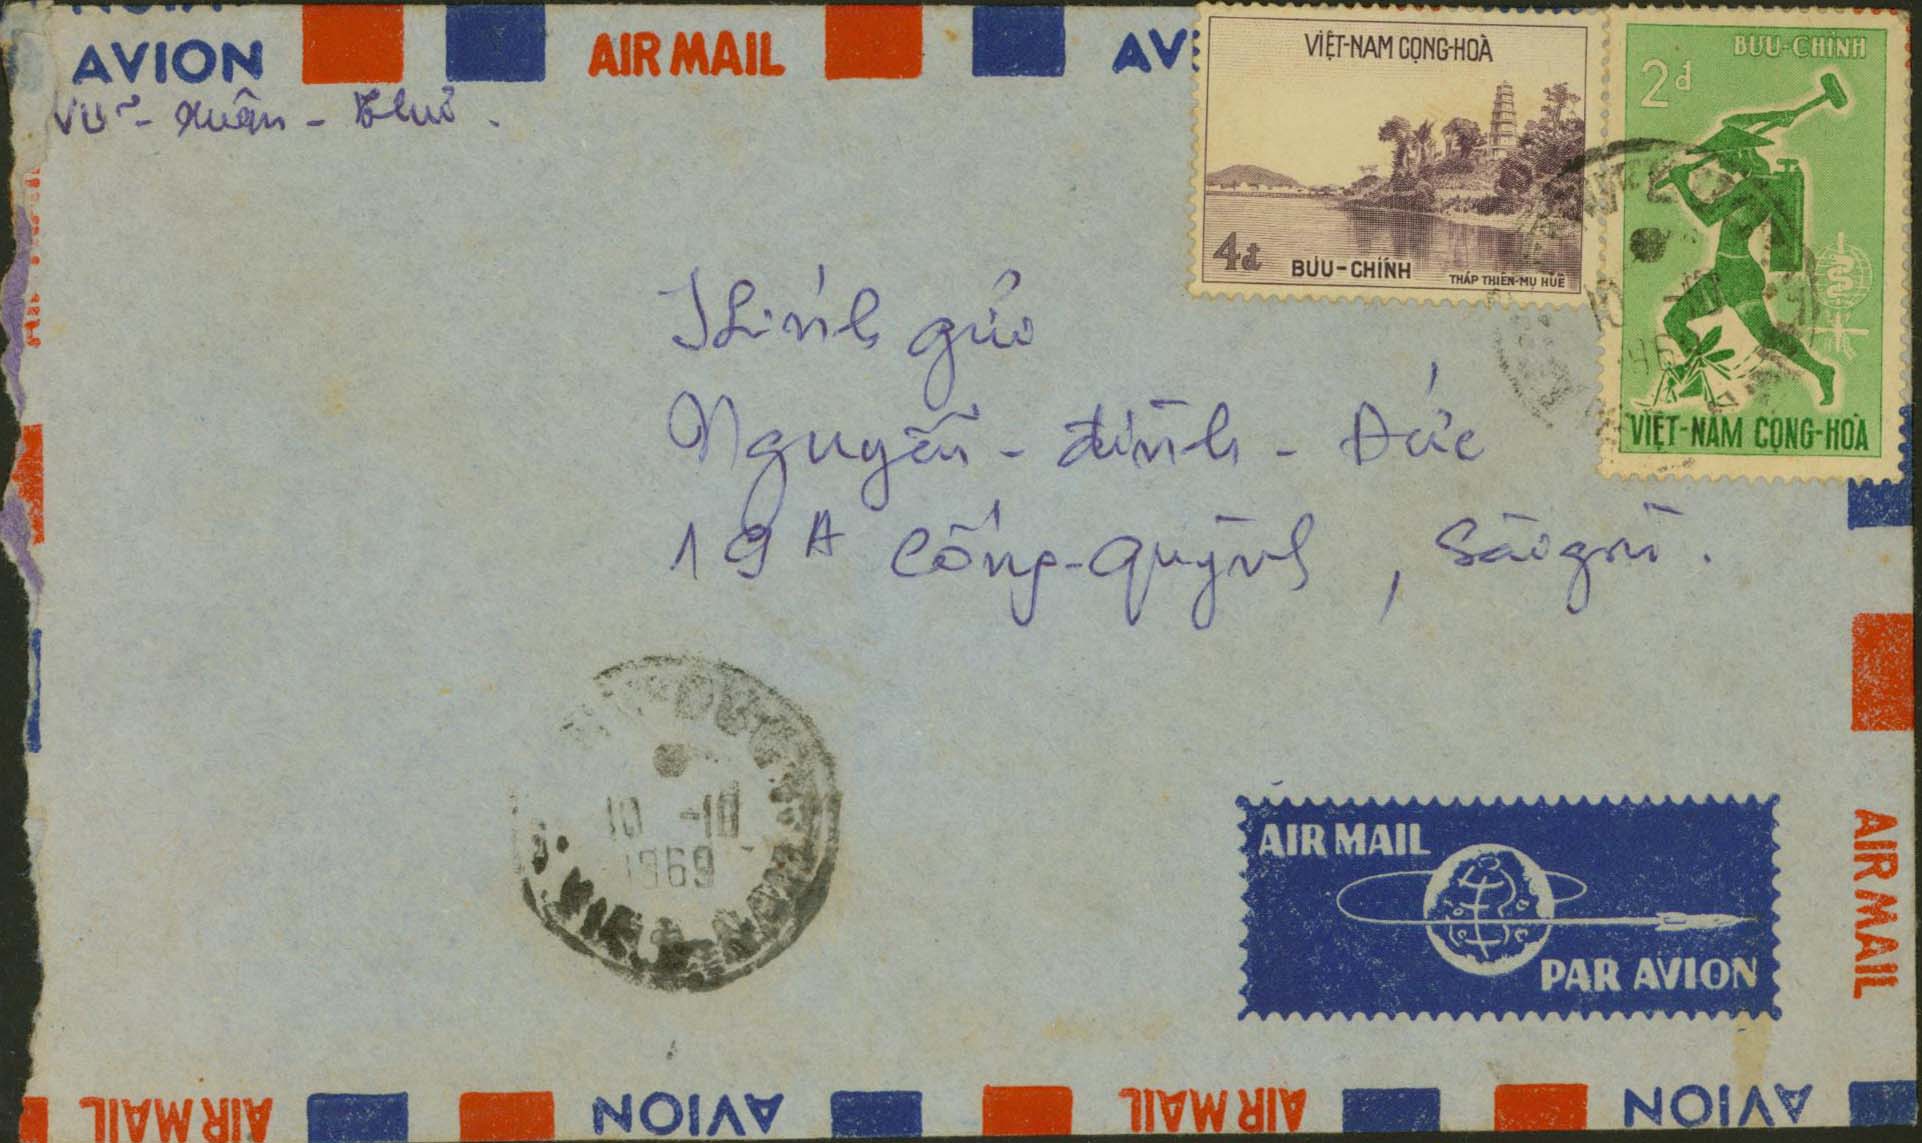 AVION AIR MAIL AV
Vũ - Xuân -
VIỆT-NAM CỘNG-HOÀ
4đ BƯU-CHÍNH THÁP THIÊN-MỤ HUẾ
BƯU-CHÍNH
2đ
VIỆT-NAM CỘNG-HÒA
Kính gửi
Nguyễn - đình - Đức
19A Cống-Quỳnh, Sàigòn.
10 -10
1969
VIỆT-NAM
AIR MAIL
PAR AVION
AIR MAIL
AIR MAIL AVION AIR MAIL AVION